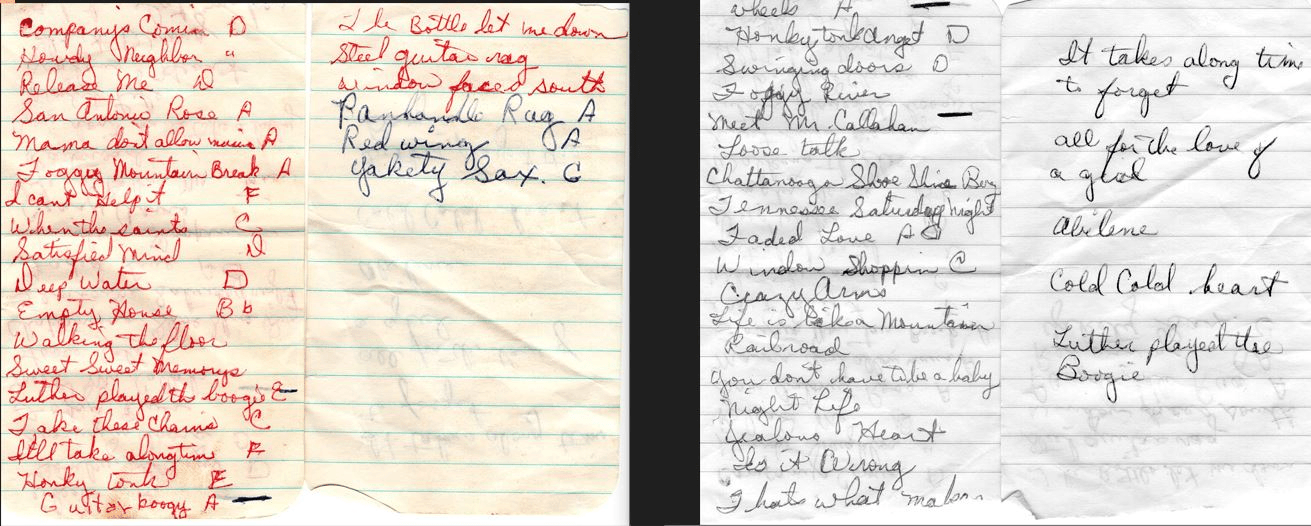 Companys Comin D
Howdy Neighbor "
Release Me D
San Antonio Rose A
Mama dont allow music A
Foggy Mountain Break A
I cant Help it F
When the saints C
Satisfied Mind D
Deep Water D
Empty House Bb
Walking the floor
Sweet Sweet Memorys
Luther played th boogie E
Take these Chains C
Itll take alongtime F
Honky tonk E
Guitar boogy A
The Bottle let me down
Steel guitar rag
window faced south
Panhandle Rag A
Red wing A
Yakety Sax. G
wheels A
Honky tonk Angel D
Swinging doors D
Foggy River
Meet Mr. Callahan
Loose talk
Chattanooga Shoe Shine Boy
Tennessee Saturday night
Faded Love A
Window Shoppin C
Crazy Arms
Life is Like a Mountain
Railroad
you don't have to be a baby
Night Life
Jealous Heart
Is it Wrong
Thats what makes
It takes along time
to forget
all for the love of
a girl
Abilene
Cold Cold heart
Luther played the
Boogie